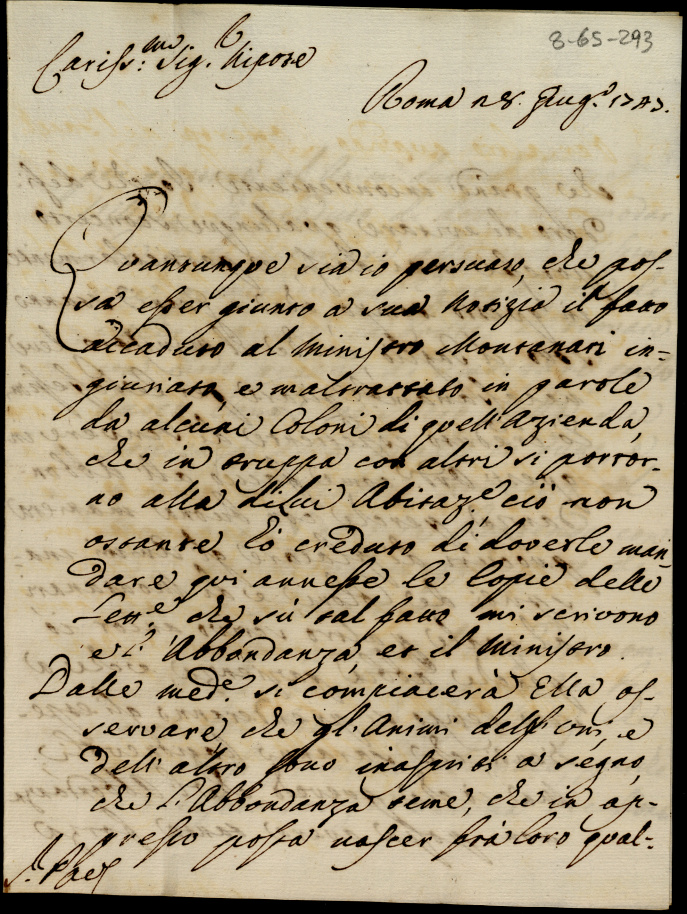 8-65-293
Cariss:mo Sig.r Nipote
Roma 28. Giug.o 1783.
Quantunque sia io persuaso, che pos-
sa esser giunto a sua Notizia il fatto
accaduto al Ministro Montanari in-
giuriato, e maltrattato in parole
da alcuni Coloni di quell'Azienda,
che in truppa con altri si portor-
no alla di lui Abitaz.e ciò non
ostante hò creduto di doverle man-
dare qui annesse le Copie delle
Lett.e che sù tal fatto mi scrivono
e l'Abbondanza, et il Ministro.
Dalle med.e si compiacerà Ella os-
servare che gl'Animi dell'uni, e
dell'altro sono inaspriti a segno,
che l'Abbondanza teme, che in ap-
presso possa nascer frà loro qual-